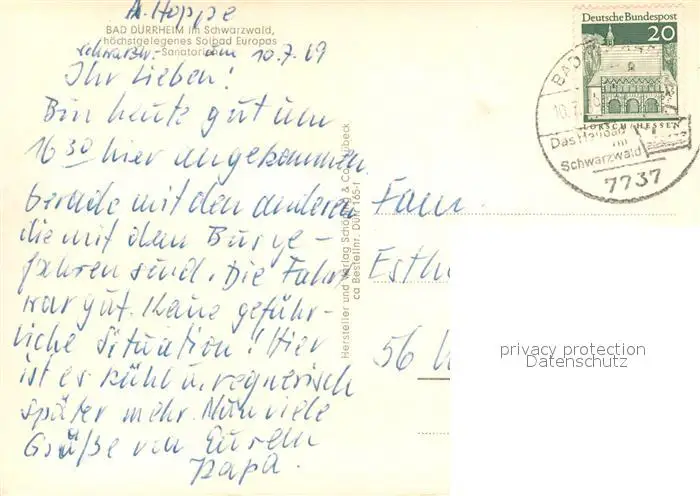 A. Hoppe
BAD DÜRRHEIM im Schwarzwald,
höchstgelegenes Solbad Europas
Sanatorium
10.7.69
Ihr Lieben!
Bin heute gut um
16 30 hier angekommen.
Gerade mit den anderen
die mit dem Bus ge-
fahren sind. Die Fahrt
war gut. Keine gefähr-
liche Situation! Hier
ist es kühl u. regnerisch
später mehr. Nun viele
Grüße von Eurem
Papa.
Hersteller und Verlag Schöning & Co, Lübeck
Bestellnr. Dürr 165-1
Fam.
Esth
56 W
Deutsche Bundespost
20
LORSCH/HESSEN
BAD
10.7.
Das Heilbad
im
Schwarzwald
7737
privacy protection
Datenschutz